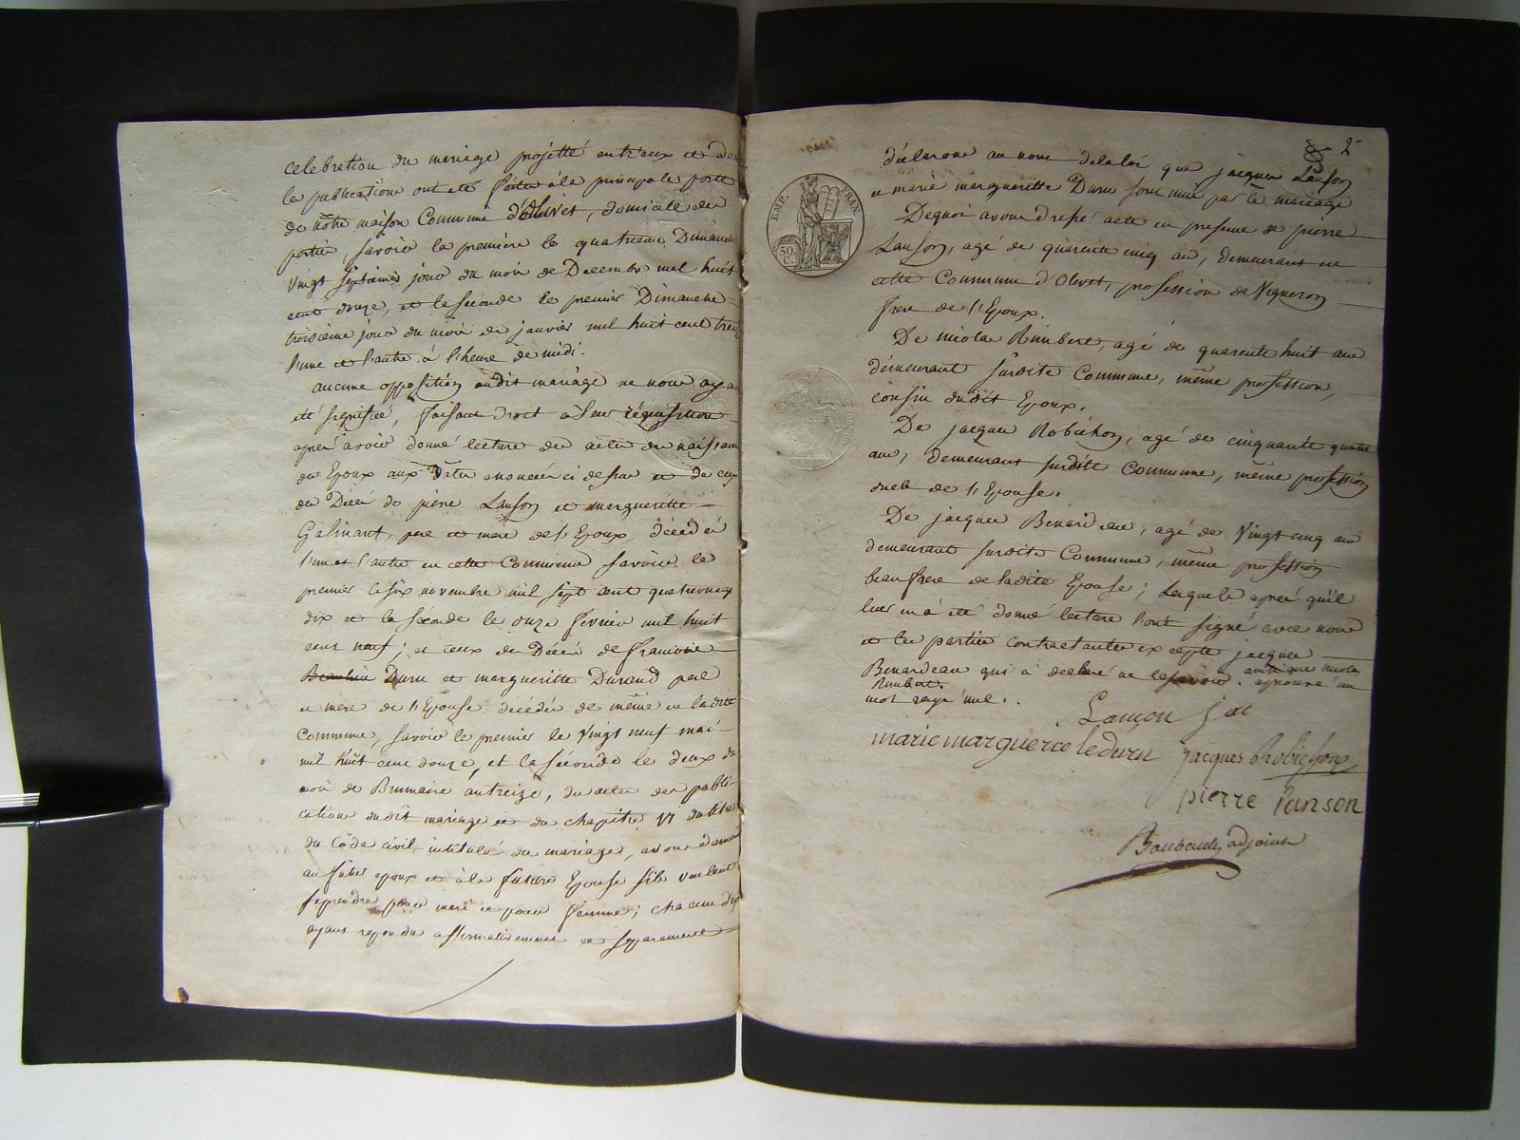 célébration du mariage projetté entr'eux et dont
les publications ont été faites à la principale porte
de nôtre maison Commune d'Olivet, domicile des
parties, savoir la première le quatrieme Dimanche
vingt septieme jour du mois de Decembre mil huit
cent douze, et la seconde le premier Dimanche
troisième jour du mois de janvier mil huit cent treize
l'une et l'autre à l'heure de midi.
aucune opposition audit mariage ne nous ayant
été signifiée, faisant droit à leur réquisition
après avoir donné lecture des actes de naissance
des Epoux aux dates enoncées ci dessus et de ceux
de Décès de pierre Lanson et margueritte
Galinant, pere et mere de l'Epoux, décédés
l'un et l'autre en cette Commune savoir le
premier le six novembre mil sept cent quatrevingt
dix et la seconde le onze février mil huit
cent neuf; et ceux de Décès de francois
Duru et margueritte Durand pere
et mere de l'Epouse décédés de même en la ditte
Commune, savoir le premier le vingt neuf mai
mil huit cent douze, et la séconde le deux du
mois de Brumaire an treize, des actes de publi-
cations dudit mariage et du chapitre VI du titre
du Code civil intitulé du mariage, avons demandé
au futur epoux et à la future Epouse s'ils veulent
se prendre pour mari et pour femme; chacun d'eux
ayant repondu affirmativement et separement
2
déclarons au nom de la loi que jacques Lanson
et marie marguerittte Duru sont unis par le mariage
Dequoi avons dressé acte en presence de pierre
Lanson, agé de quarente cinq ans, demeurant en
cette Commune d'Olivet, profession de Vigneron
frere de l'Epoux.
EMP. FRAN.
50
De nicolas Rimbert, agé de quarente huit ans
demeurant surdite Commune, même profession,
cousin dudit Epoux.
De jacques Robichon, agé de cinquante quatre
ans, demeurant surdite Commune, même profession
oncle de l'Epouse.
De jacques Benardeau, agé de vingt cinq ans
demeurant surdite Commune, même profession
beau frere de ladite Epouse; Lesquels après qu'il
leur en a été donné lecture l'ont signé avec nous
et les parties contractantes excepté jacques
Benardeau qui à declaré ne le savoir. ainsi que nicolas
Rimbert. approuvé un
mot rayé nul.
Lançon jac
marie marguerce leduru jacques Robichon
pierre lanson
adjoint